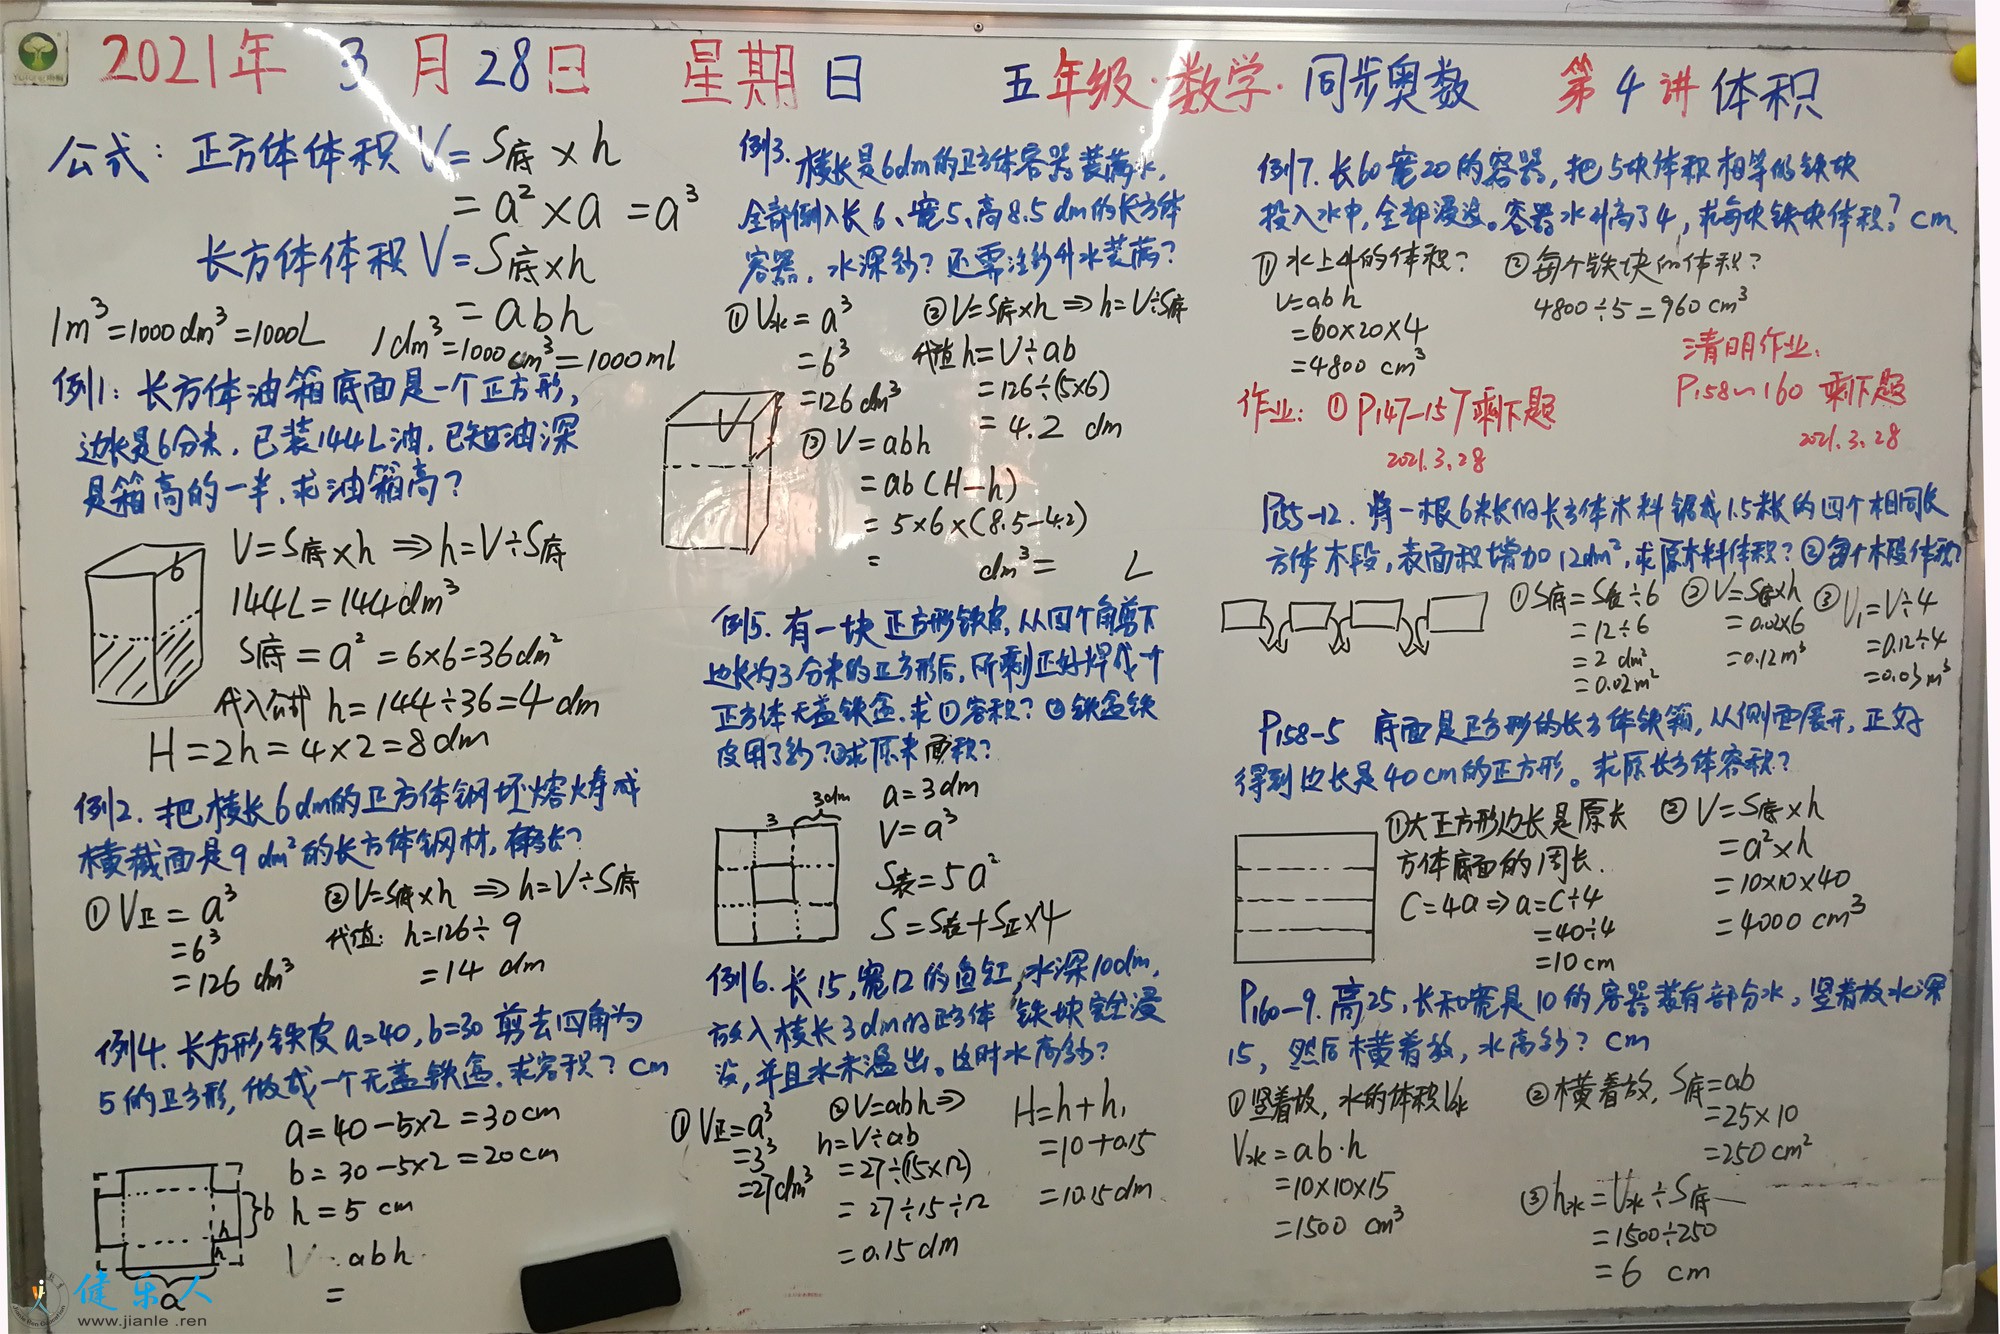 2021年 3月28日 星期日 五年级·数学·同步奥数 第4讲体积
公式: 正方体体积 V=S底×h
=a²×a =a³
长方体体积 V=S底×h
=abh
1m³=1000dm³=1000L 1dm³=1000cm³=1000ml
例1: 长方体油箱底面是一个正方形,
边长是6分米, 已装144L油, 已知油深
是箱高的一半, 求油箱高?
6
V=S底×h ⇒ h=V÷S底
144L=144dm³
S底=a²=6×6=36dm²
代入公式 h=144÷36=4dm
H=2h=4×2=8dm
例2. 把棱长6dm的正方体钢坯熔铸成
横截面是9dm²的长方体钢材, 有多长?
①V正=a³
=6³
=126 dm³
②V=S底×h ⇒ h=V÷S底
代值: h=126÷9
=14 dm
例4. 长方形铁皮a=40, b=30 剪去四角为
5的正方形, 做成一个无盖铁盒, 求容积? cm
a=40-5×2=30cm
b=30-5×2=20cm
h=5 cm
V abh
=
b
h
h
a
例3. 棱长是6dm的正方体容器装满水,
全部倒入长6、宽5、高8.5dm的长方体
容器, 水深多少? 还需注多少升水装满?
①V水=a³
=6³
=126dm³
②V=S底×h ⇒ h=V÷S底
代值 h=V÷ab
=126÷(5×6)
=4.2 dm
V
③V=abh
=ab(H-h)
=5×6×(8.5-4.2)
= dm³= L
例5. 有一块正方形铁皮, 从四个角剪下
边长为3分米的正方形后, 所剩正好焊成一个
正方体无盖铁盒. 求①容积? ②铁盒铁
皮用了多少? ③求原来面积?
3
3dm
a=3dm
V=a³
S表=5a²
S=S表+S正×4
例6. 长15, 宽12的鱼缸, 水深10dm,
放入棱长3dm的正方体 铁块完全浸
没, 并且水未溢出。这时水高多少?
①V正=a³
=3³
=27dm³
②V=abh⇒
h=V÷ab
=27÷(15×12)
=27÷15÷12
=0.15dm
H=h+h₁
=10+0.15
=10.15dm
例7. 长60宽20的容器, 把5块体积相等的铁块
投入水中, 全部浸没。容器水升高了4, 求每块铁块体积? cm
①水上升的体积?
V=abh
=60×20×4
=4800 cm³
②每个铁块的体积?
4800÷5=960cm³
清明作业:
P158~160 剩下题
2021.3.28
作业: ①P147-157剩下题
2021.3.28
P155-12. 将一根6米长的长方体木料锯成1.5米长的四个相同长
方体木段, 表面积增加12dm², 求原木料体积? ②每个木段体积?
①S底=S表÷6
=12÷6
=2 dm²
=0.02m²
②V=S底×h
=0.02×6
=0.12m³
③V₁=V÷4
=0.12÷4
=0.03m³
P158-5 底面是正方形的长方体铁箱, 从侧面展开, 正好
得到边长是40cm的正方形。求原长方体容积?
①大正方形边长是原长
方体底面的周长.
C=4a⇒a=C÷4
=40÷4
=10cm
②V=S底×h
=a²×h
=10×10×40
=4000cm³
P160-9. 高25, 长和宽是10的容器装有部分水, 竖着放水深
15, 然后横着放, 水高多少? cm
①竖着放, 水的体积V水
V水=ab·h
=10×10×15
=1500 cm³
②横着放, S底=ab
=25×10
=250cm²
③h水=V水÷S底
=1500÷250
=6 cm
健乐人
www.jianle.ren